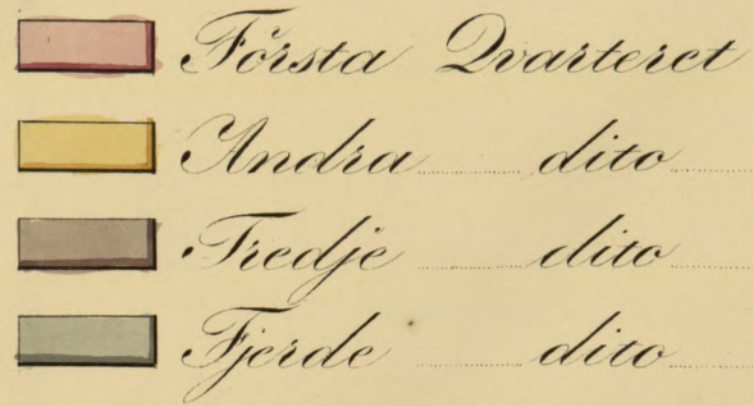 Första Qvarteret
Andra dito
Tredje dito
Fjerde dito